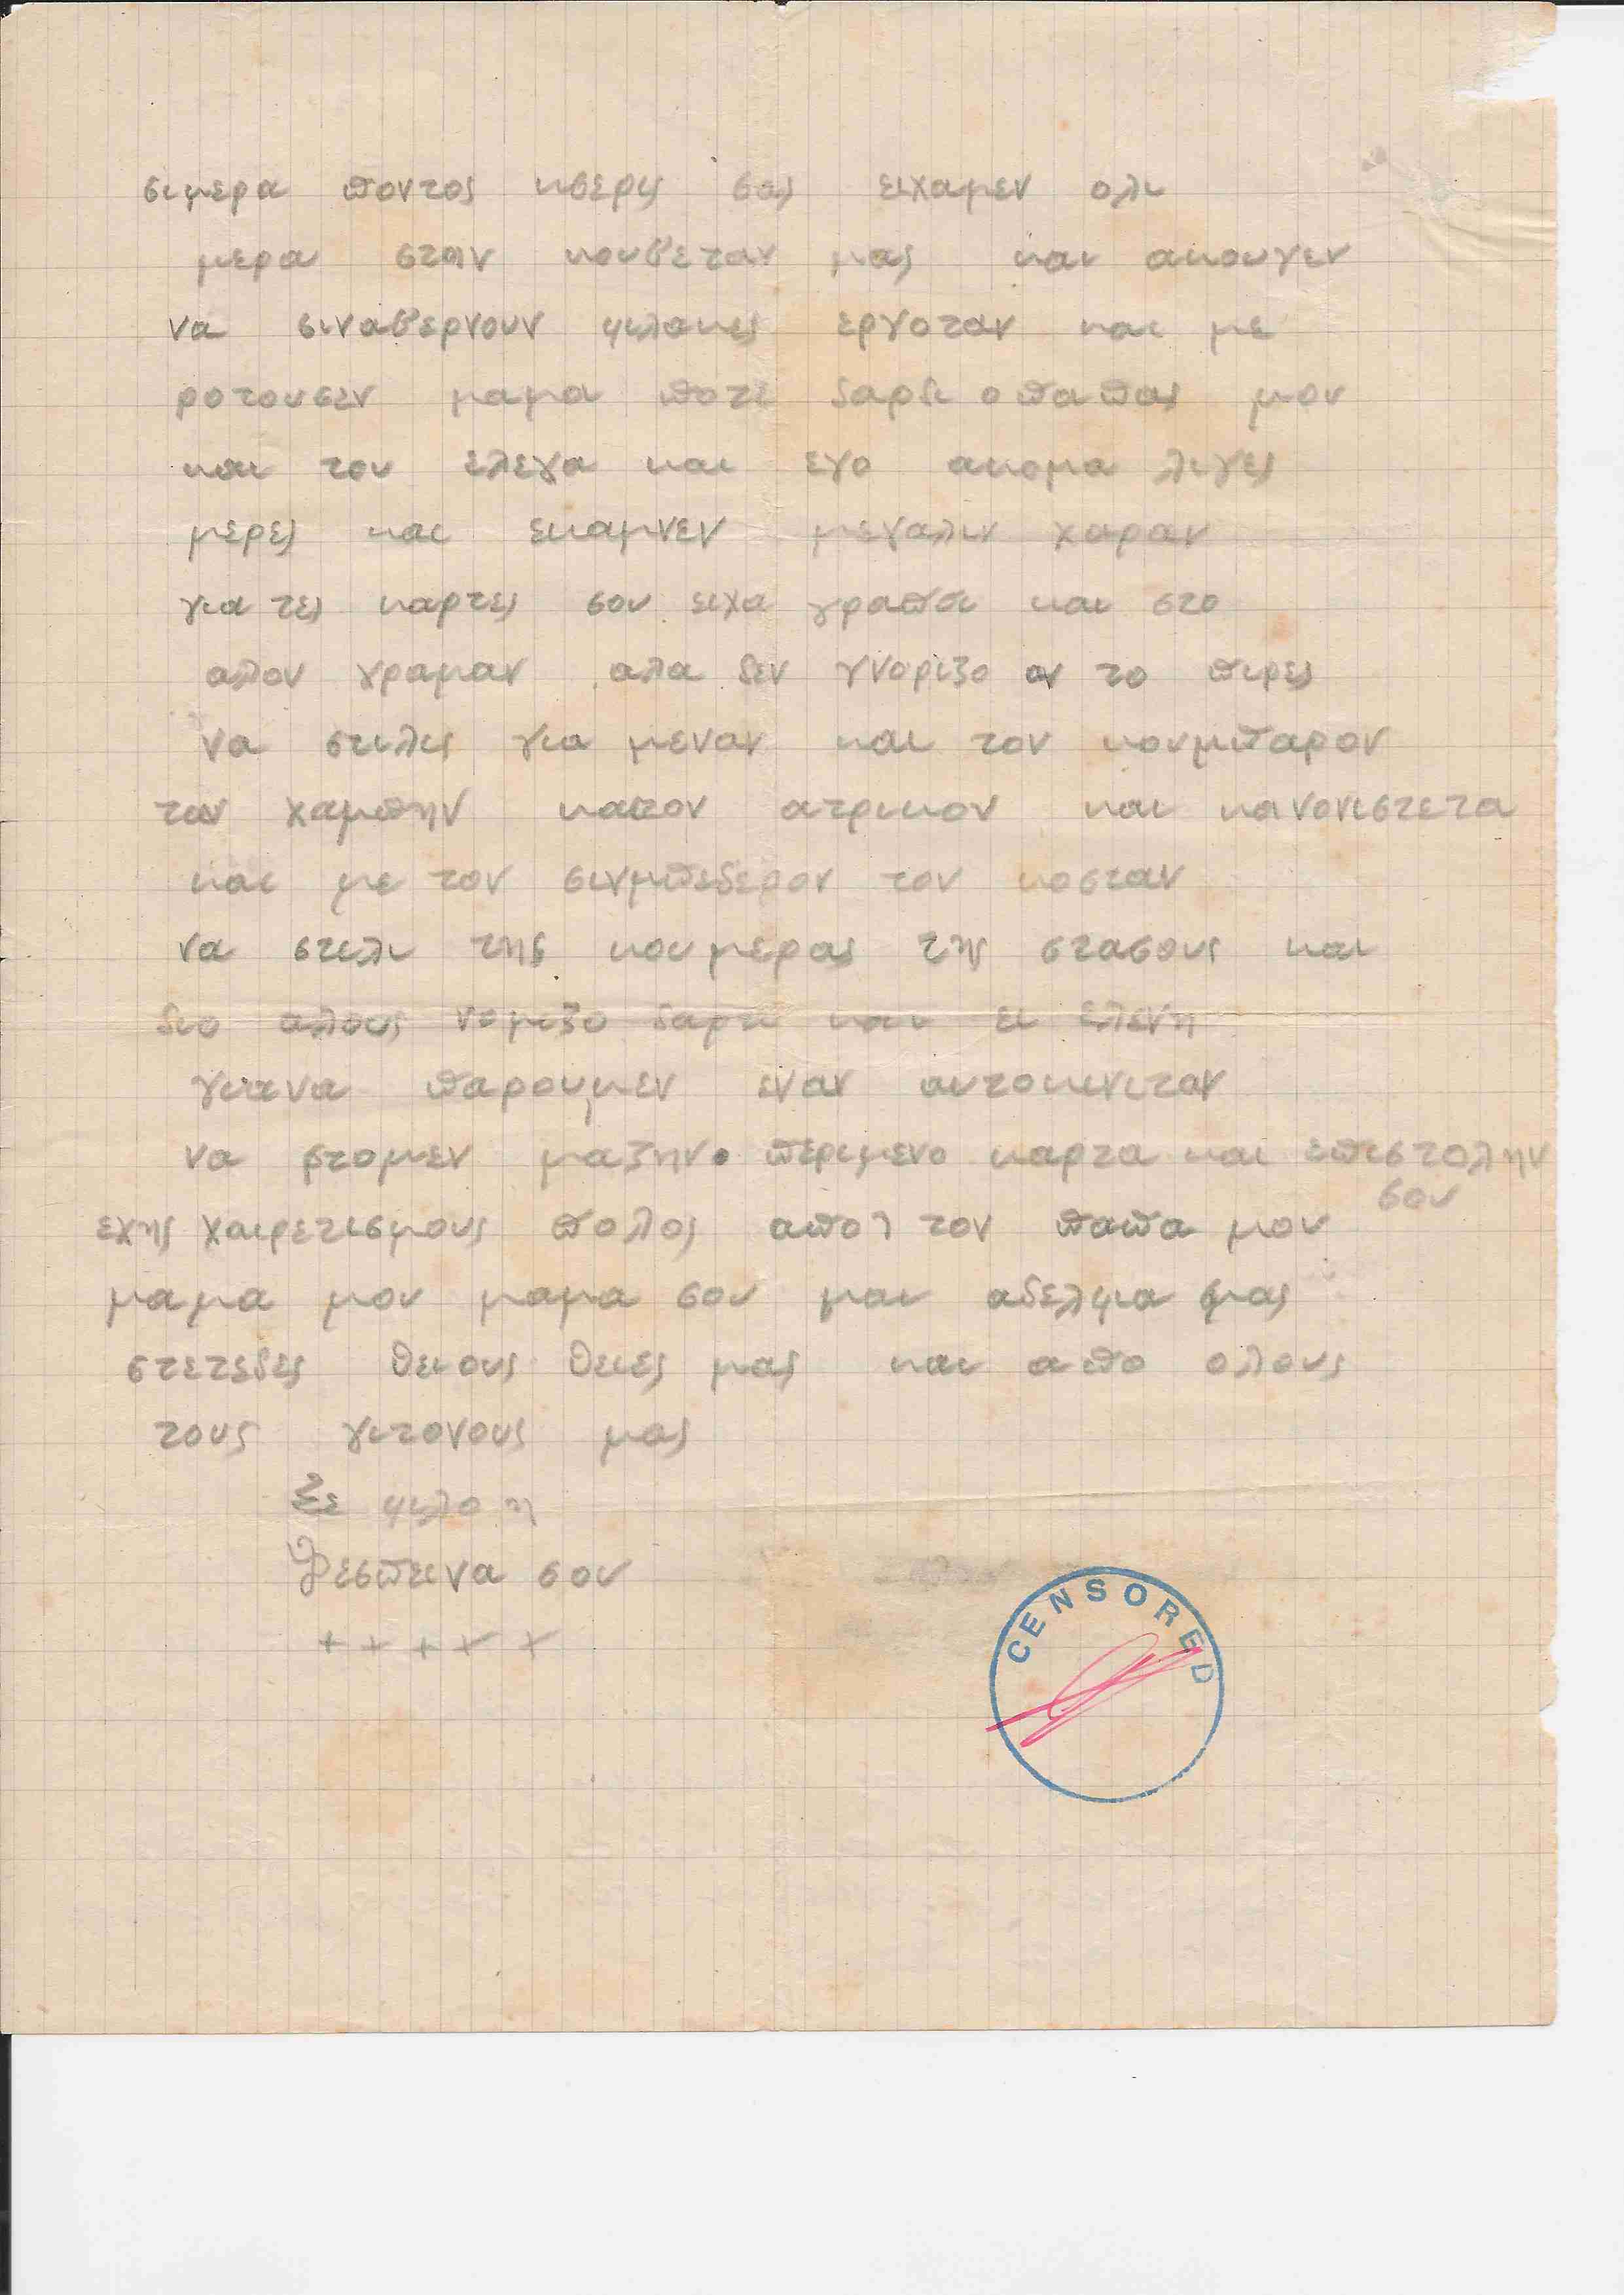 σιμερα ποντος κσερις σας ειχαμεν ολι
μερα στην κουβεταν μας και ακουγεν
να σιναβερνουν φιλακες εργοταν και με
ροτουσεν μαμα ποτε δαρδι ο παπας μου
και του ελεγα και εγο ακομα λιγες
μερες και εκαμνεν μεγαλιν χαραν
για τες καρτες σου ειχα γραπσι και στο
αλον γραμαν αλα δεν γνοριζο αν το πιρες
να στιλις για μεναν και τον κουμπαρον
τον χαμπην και τον ατρικον και κανονιστετα
και με τον σινμπεδερον τον κοσταν
να στιλι της κουμερας της στασους και
διο αλους νομιζο δαρτι και ει ελενη
για να παρουμεν εναν αυτοκινιταν
να ρτομεν μαζην. περιμενο καρτα και επιστολην
σου
εχης χαιρετισμους πολος απο τον παπα μου
μαμα μου μαμα σου και αδελφια μας
στετεδες θειους θειες μας και απο ολους
τους γιτονους μας
Σε φιλο η
Δεσπεινα σου
+ + + + +
CENSORED